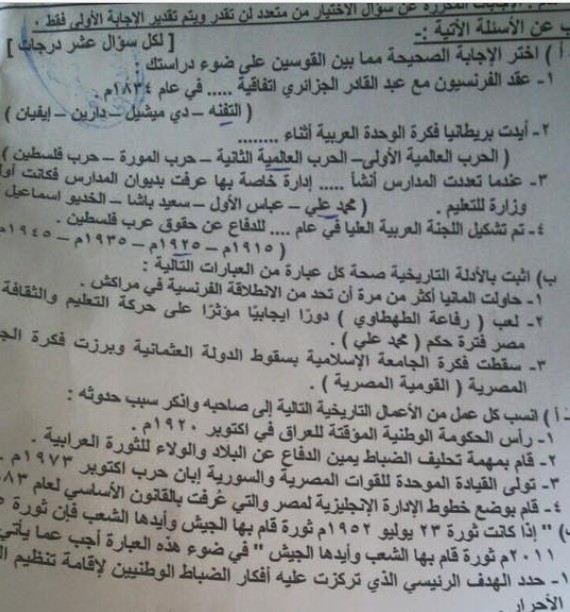 الإجابات المكررة عن سؤال الاختيار من متعدد لن تقدر ويتم تقدير الإجابة الأولى فقط .
عن الأسئلة الآتية :-
[ لكل سؤال عشر درجات ]
أ ) اختر الإجابة الصحيحة مما بين القوسين على ضوء دراستك :
١- عقد الفرنسيون مع عبد القادر الجزائري اتفاقية ..... في عام ١٨٣٤م .
( التفنه – دي ميشيل – دارين – إيفيان )
٢- أيدت بريطانيا فكرة الوحدة العربية أثناء ........
( الحرب العالمية الأولى– الحرب العالمية الثانية – حرب المورة – حرب فلسطين )
٣- عندما تعددت المدارس أنشأ ..... إدارة خاصة بها عرفت بديوان المدارس فكانت
وزارة للتعليم . ( محمد علي – عباس الأول – سعيد باشا – الخديو اسماعيل
٤- تم تشكيل اللجنة العربية العليا في عام .... للدفاع عن حقوق عرب فلسطين .
( ١٩١٥م – ١٩٢٥م – ١٩٣٥م – ١٩٤٥م
ب) اثبت بالأدلة التاريخية صحة كل عبارة من العبارات التالية :
١- حاولت المانيا أكثر من مرة أن تحد من الانطلاقة الفرنسية في مراكش .
٢- لعب ( رفاعة الطهطاوي ) دورًا ايجابيًا مؤثرًا على حركة التعليم والثقافة
مصر فترة حكم ( محمد علي ) .
٣- سقطت فكرة الجامعة الإسلامية بسقوط الدولة العثمانية وبرزت فكرة
المصرية ( القومية المصرية ) .
أ ) انسب كل عمل من الأعمال التاريخية التالية إلى صاحبه واذكر سبب حدوثه :
١- رأس الحكومة الوطنية المؤقتة للعراق في اكتوبر ١٩٢٠م .
٢- قام بمهمة تحليف الضباط يمين الدفاع عن البلاد والولاء للثورة العرابية .
٣- تولى القيادة الموحدة للقوات المصرية والسورية إبان حرب اكتوبر ١٩٧٣م .
٤- قام بوضع خطوط الإدارة الإنجليزية لمصر والتي عُرفت بالقانون الأساسي لعام
ب) " إذا كانت ثورة ٢٣ يوليو ١٩٥٢م ثورة قام بها الجيش وأيدها الشعب فإن ثورة
٢٠١١م ثورة قام بها الشعب وأيدها الجيش " في ضوء هذه العبارة أجب عما يأتي
١- حدد الهدف الرئيسي الذي تركزت عليه أفكار الضباط الوطنيين لإقامة تنظيم
الأحرار .